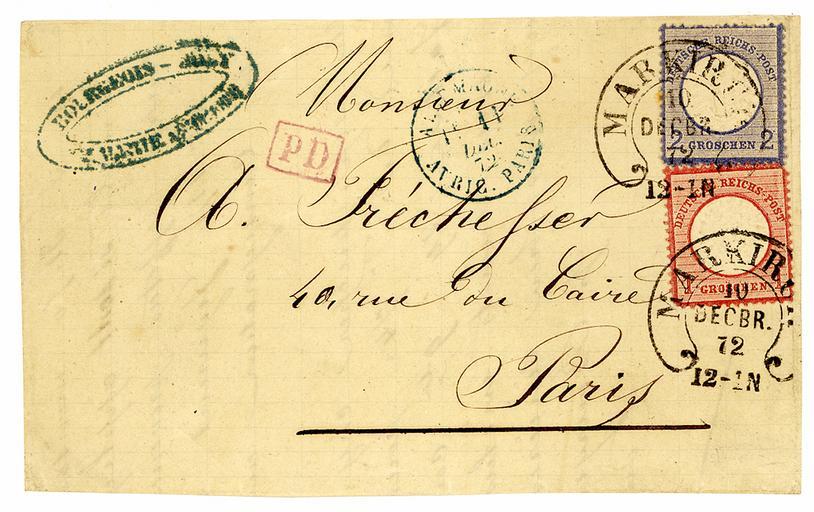 BOURGEOIS - JOLY
PD
DEC.
72
PARIS
Monsieur
A. Fréchesser
40, rue du Caire
Paris
DEUTSCHE REICHS-POST
2 GROSCHEN 2
MARKIRCH
10
DECBR.
72
12-1N
DEUTSCHE REICHS-POST
1 GROSCHEN
MARKIRCH
10
DECBR.
72
12-1N